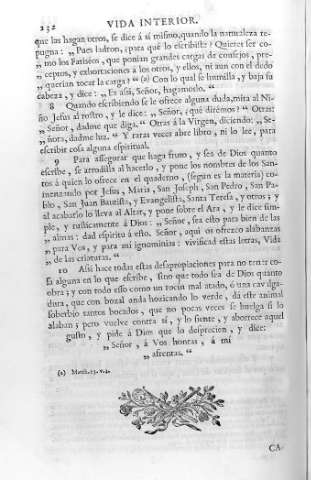 232 VIDA INTERIOR.
que las hagan otros, se dice á sí mismo, quando la naturaleza re-
pugna: „ Pues ladron, ¿para qué lo escribiste? Quieres ser co-
„ mo los Fariséos, que ponian grandes cargas de consejos, pre-
„ ceptos, y exhortaciones á los otros, y ellos, ni aun con el dedo
„ querian tocar la carga? “ (a) Con lo qual se humilla, y baja su
cabeza, y dice: „ Ea asía, Señor, hagamoslo. “
8 Quando escribiendo se le ofrece alguna duda, mira al Ni-
ño Jesus al rostro, y le dice: „ Señor, ¿qué dirémos? “ Otras:
„ Señor, dadme que diga. “ Otras á la Virgen, diciendo: „ Se-
„ ñora, dadme luz. “ Y raras veces abre libro, ni lo lee, para
escribir cosa alguna espiritual.
9 Para assegurar que haga fruto, y sea de Dios quanto
escribe, se arrodilla al hacerlo, y pone los nombres de los San-
tos á quien lo ofrece en el quaderno, (segun es la materia) co-
menzando por Jesus, Maria, San Joseph, San Pedro, San Pa-
blo, San Juan Bautista, y Evangelista, Santa Teresa, y otros; y
al acabarlo lo lleva al Altar, y pone sobre el Ara, y le dice sim-
ple, y rusticamente á Dios: „ Señor, sea esto para bien de las
„ almas: dad espiritu á esto. Señor, aqui os ofrezco alabanzas
„ para Vos, y para mi ignominia: vivificad estas letras, Vida
„ de las criaturas. “
10 Assi hace todas estas desapropiaciones para no tener co-
sa alguna en lo que escribe, sino que todo sea de Dios quanto
obra; y con todo esso como un rocin mal atado, ó una cavalga-
dura, que con bozal anda hozicando lo verde, dá este animal
soberbio tantos bocados, que no pocas veces se huelga si lo
alaban; pero vuelve contra sí, y lo siente, y aborrece aquel
gusto, y pide á Dios que lo desprecien, y dice:
„ Señor, á Vos honras, á mí
„ afrentas. “
(a) Matth. 23. v. 4.
CA-